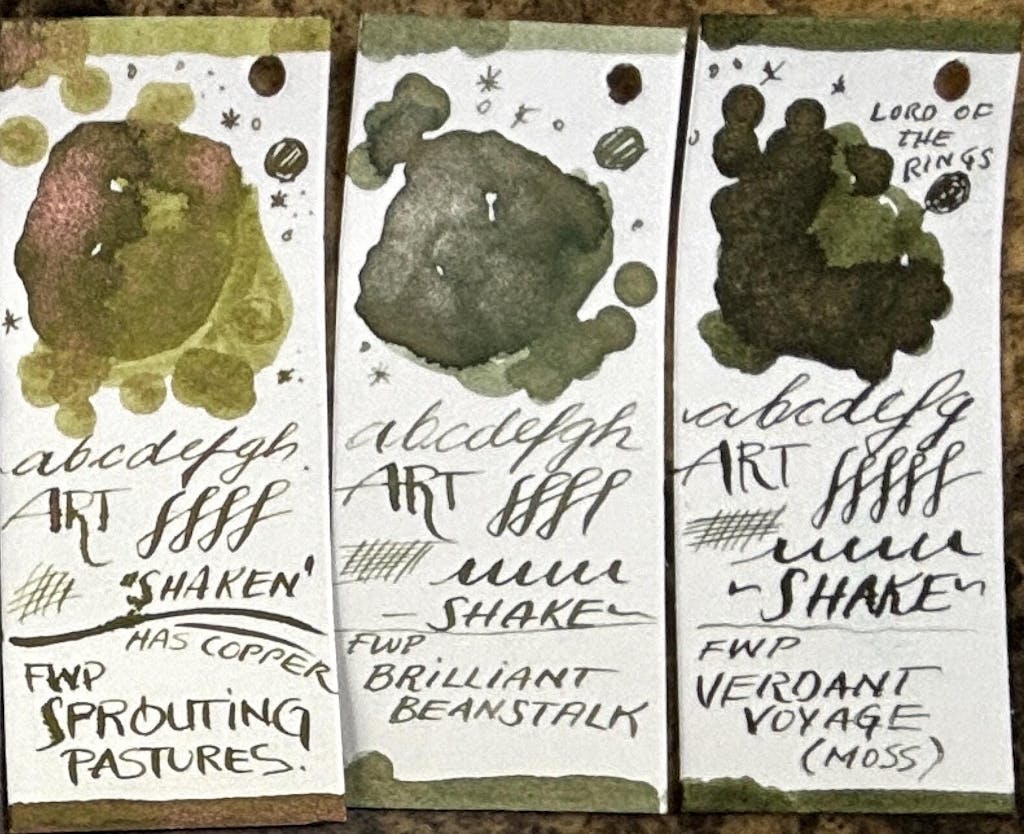 abcdefgh
ART ffff
"SHAKEN"
HAS COPPER
FWP
SPROUTING
PASTURES.
abcdefgh
ART ffff
uuuu
– SHAKE ~
FWP
BRILLIANT
BEANSTALK
LORD OF
THE
RINGS
abcdefg
ART fffff
uuuu
~ SHAKE ~
FWP
VERDANT
VOYAGE
(MOSS)